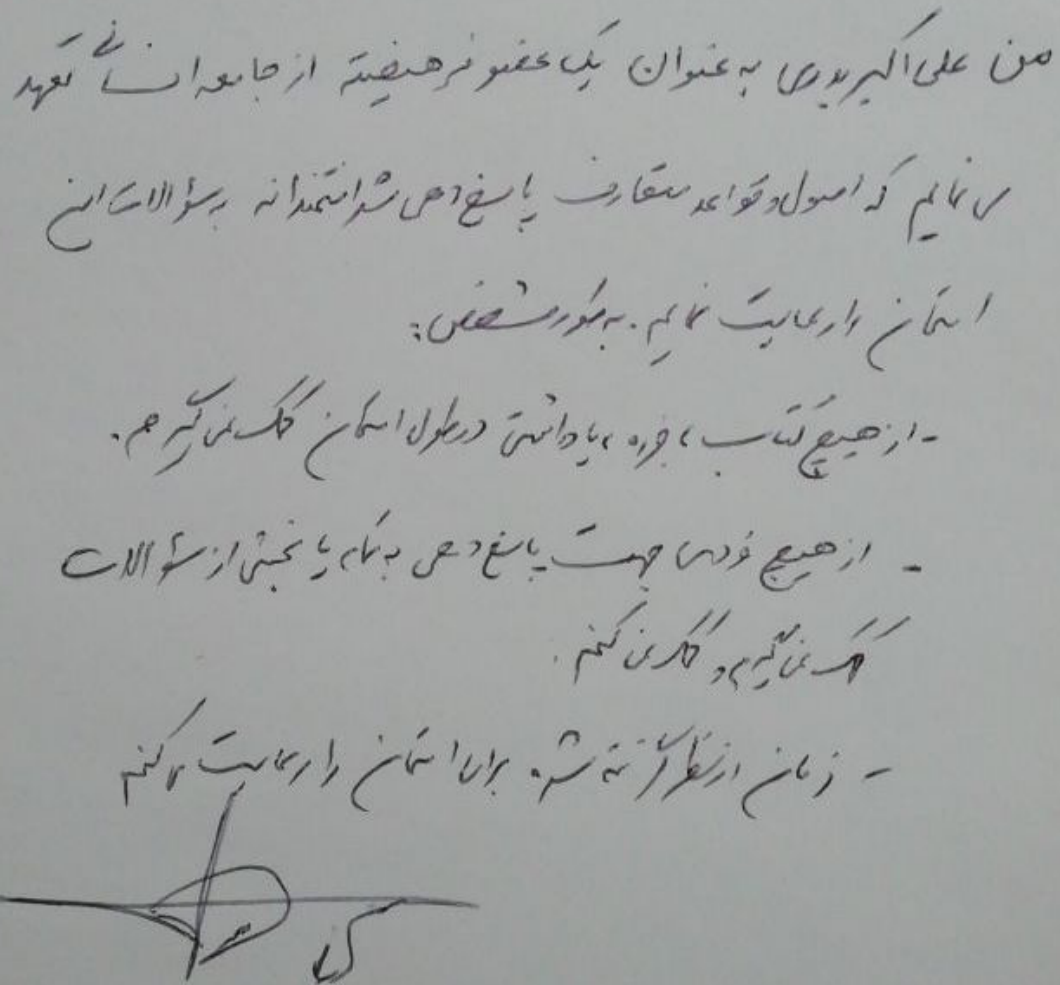 من علی اکبر بدری به عنوان یک عضو فرهیخته از جامعه انسانی تعهد
می نمایم که اصول و قواعد متعارف پاسخ دهی شرافتمندانه به سؤالات این
امتحان را رعایت نمایم. به طور مشخص:
- از هیچ کتاب، جزوه، یادداشتی در طول امتحان کمک نمی گیرم.
- از هیچ فردی جهت پاسخ دهی به تمام یا بخشی از سؤالات
کمک نمی گیرم و کمک نمی کنم.
- زمان در نظر گرفته شده برای امتحان را رعایت می کنم